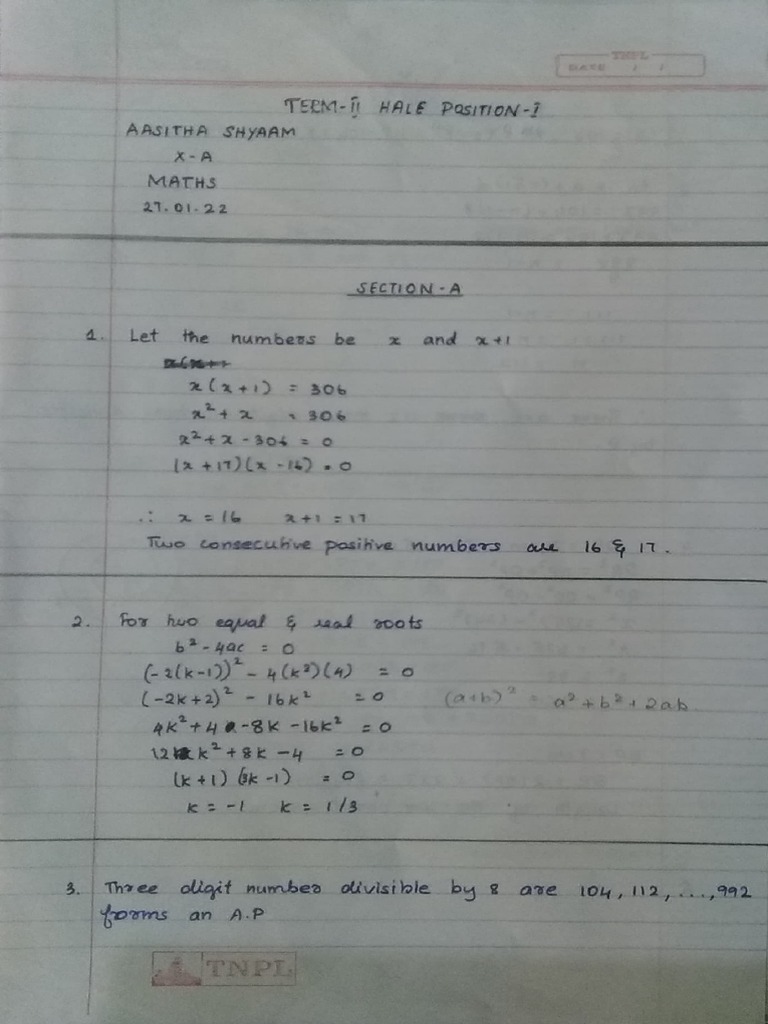 TNPL
DATE / /
TERM-II HALE POSITION-I
AASITHA SHYAAM
X-A
MATHS
27.01.22
SECTION-A
1. Let the numbers be x and x+1
x(x+1) = 306
x² + x = 306
x² + x - 306 = 0
(x + 17)(x - 16) = 0
∴ x = 16 x+1 = 17
Two consecutive positive numbers are 16 & 17.
2. For two equal & real roots
b² - 4ac = 0
(-2(k-1))² - 4(k²)(4) = 0
(-2k+2)² - 16k² = 0 (a+b)² = a² + b² + 2ab
4k² + 4 - 8k - 16k² = 0
12k² + 8k - 4 = 0
(k+1) (3k-1) = 0
k = -1 k = 1/3
3. Three digit number divisible by 8 are 104, 112, ..., 992
forms an A.P
TNPL